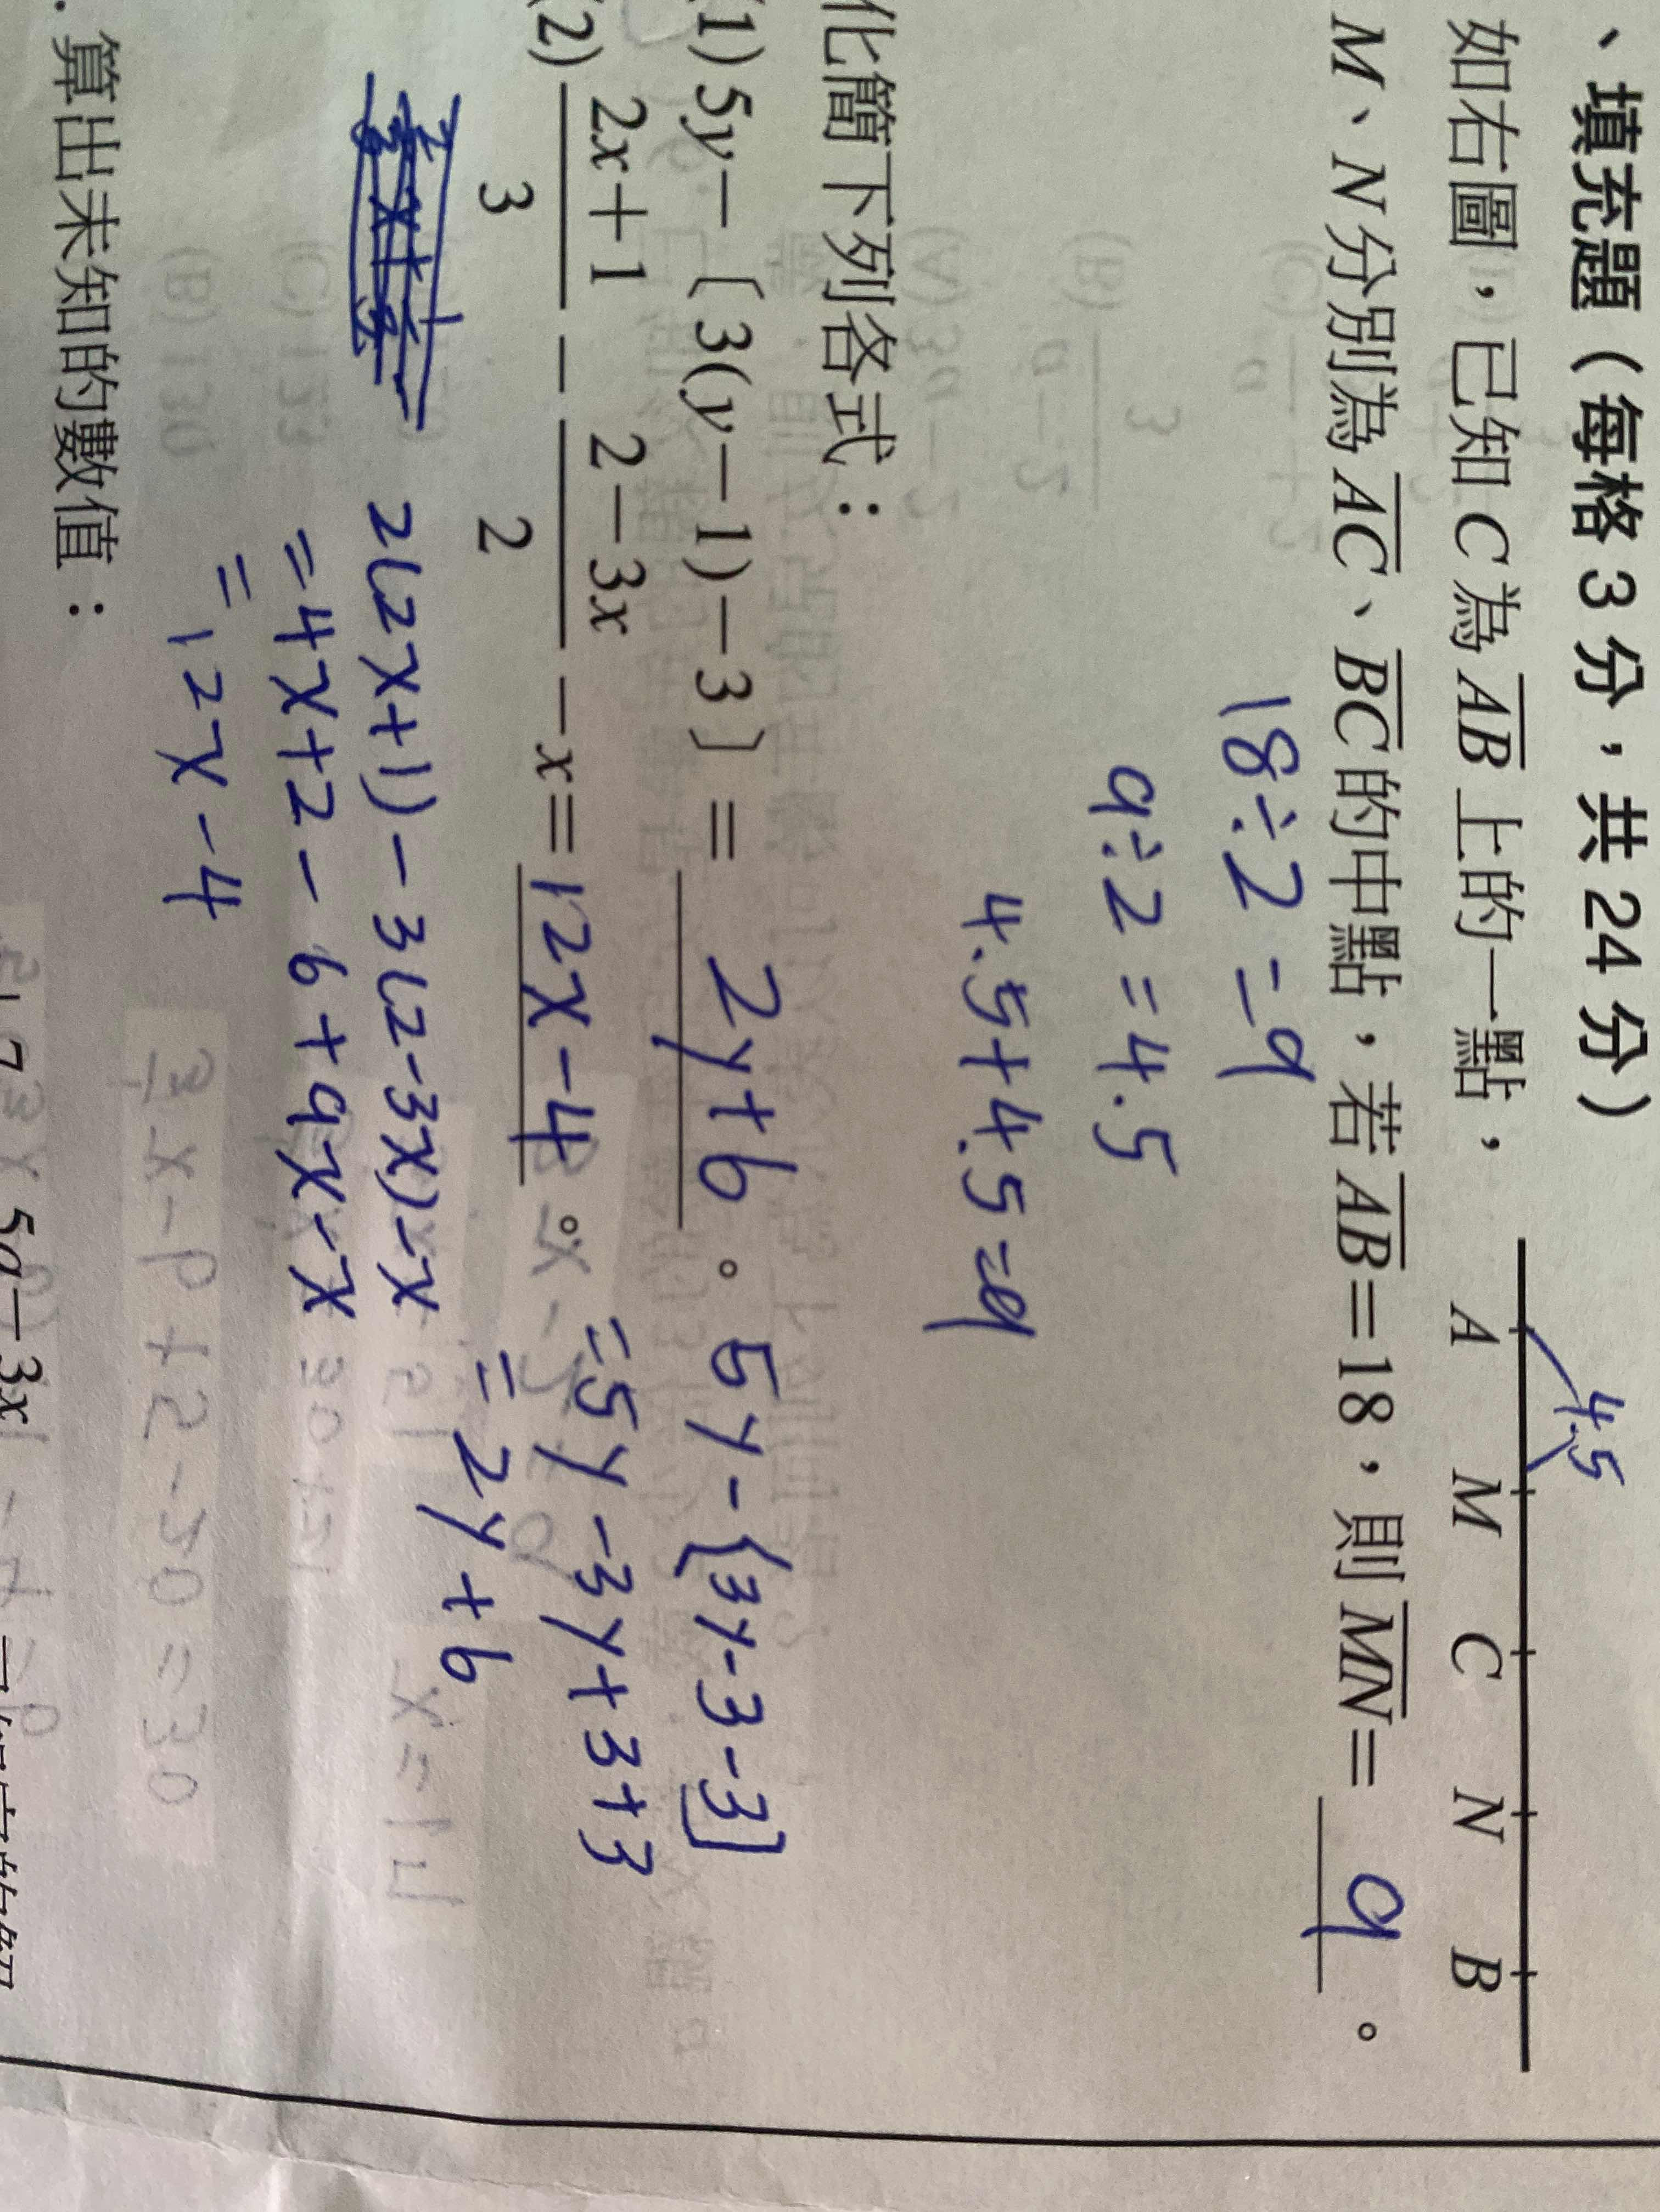 、填充題(每格3分,共24分)
如右圖,已知C為AB上的一點,
4.5
A M C N B
M、N分別為AC、BC的中點,若AB=18,則MN= 9 。
18÷2=9
9÷2=4.5
4.5+4.5=9
化簡下列各式:
(1) 5y-〔3(y-1)-3〕= 2y+6 。
5y-[3y-3-3]
=5y-3y+3+3
=2y+6
(2) (2x+1)/3 - (2-3x)/2 - x = 12x-4 。
2(2x+1)-3(2-3x)-x
=4x+2-6+9x-x
=12x-4
. 算出未知的數值: